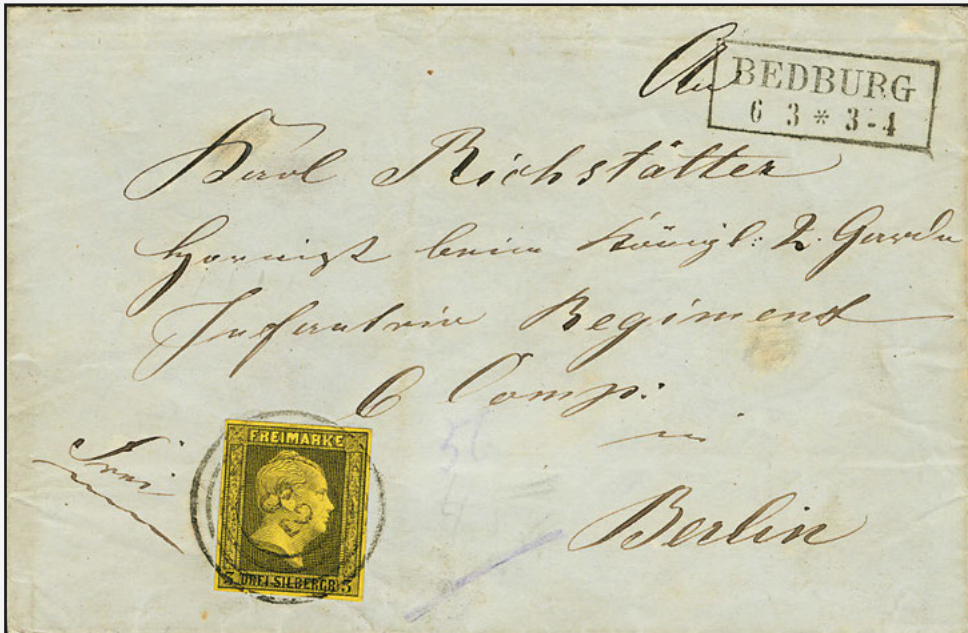 An
BEDBURG
6 3 * 3-4
Karl Richstätter
Hornist beim Königl: 2. Garde
Infanterie Regiment
6 Comp:
in
Berlin
Frei
FREIMARKE
3 DREI SILBERGR. 3